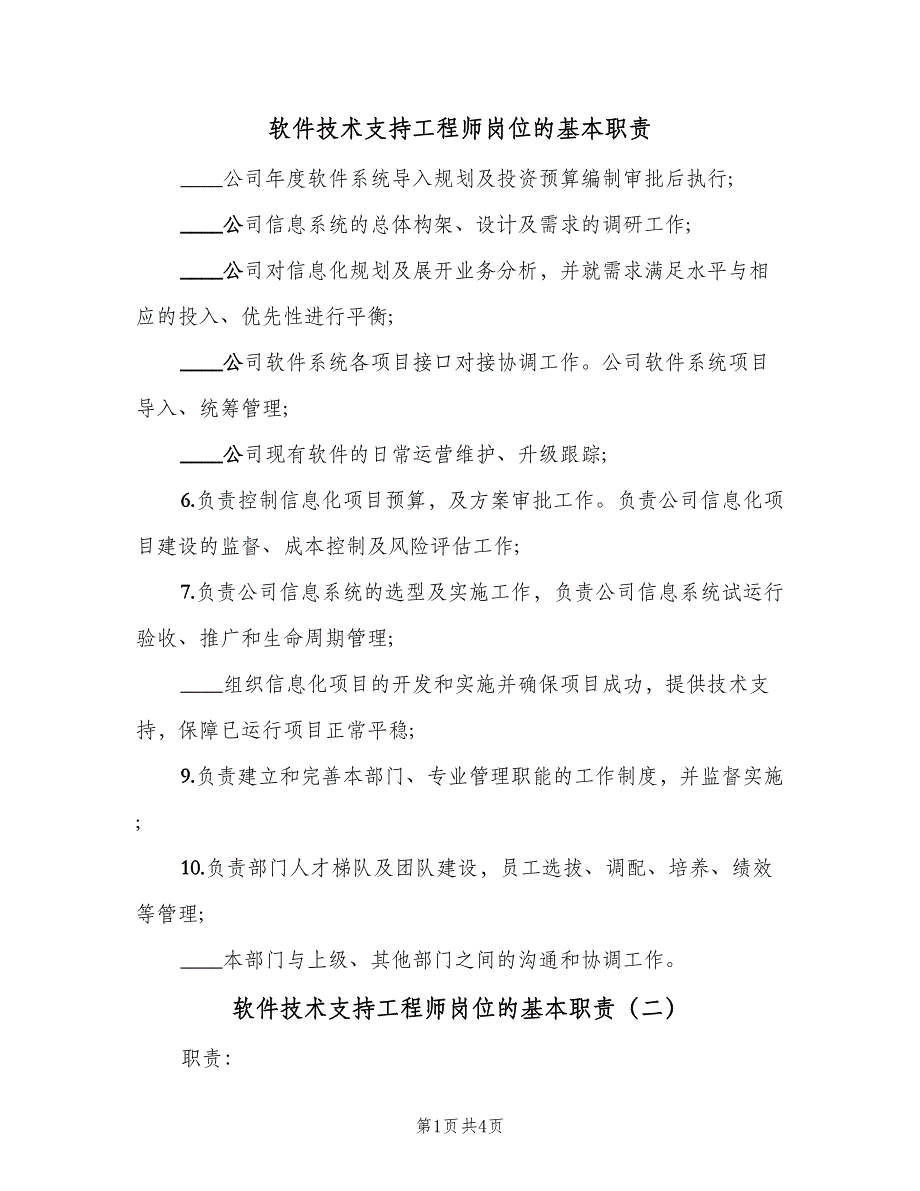 软件技术支持工程师岗位的基本职责
____公司年度软件系统导入规划及投资预算编制审批后执行;
____公司信息系统的总体构架、设计及需求的调研工作;
____公司对信息化规划及展开业务分析，并就需求满足水平与相
应的投入、优先性进行平衡;
____公司软件系统各项目接口对接协调工作。公司软件系统项目
导入、统筹管理;
____公司现有软件的日常运营维护、升级跟踪;
6.负责控制信息化项目预算，及方案审批工作。负责公司信息化项
目建设的监督、成本控制及风险评估工作;
7.负责公司信息系统的选型及实施工作，负责公司信息系统试运行
验收、推广和生命周期管理;
____组织信息化项目的开发和实施并确保项目成功，提供技术支
持，保障已运行项目正常平稳;
9.负责建立和完善本部门、专业管理职能的工作制度，并监督实施
;
10.负责部门人才梯队及团队建设，员工选拔、调配、培养、绩效
等管理;
____本部门与上级、其他部门之间的沟通和协调工作。
软件技术支持工程师岗位的基本职责（二）
职责：
第1页共4页